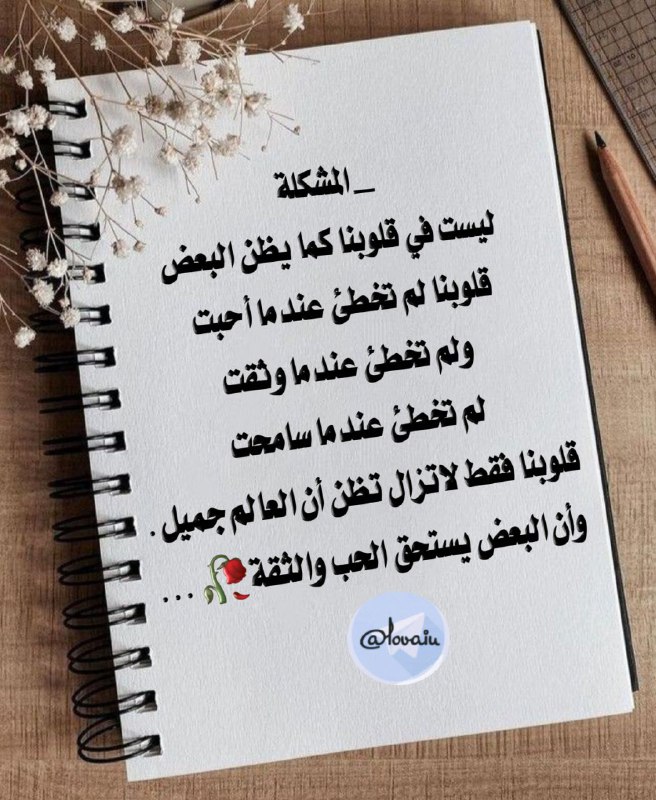 _ المشكلة
ليست في قلوبنا كما يظن البعض
قلوبنا لم تخطئ عندما أحبت
ولم تخطئ عندما وثقت
لم تخطئ عندما سامحت
قلوبنا فقط لاتزال تظن أن العالم جميل .
وأن البعض يستحق الحب والثقة🥀 ...
@lovaiu